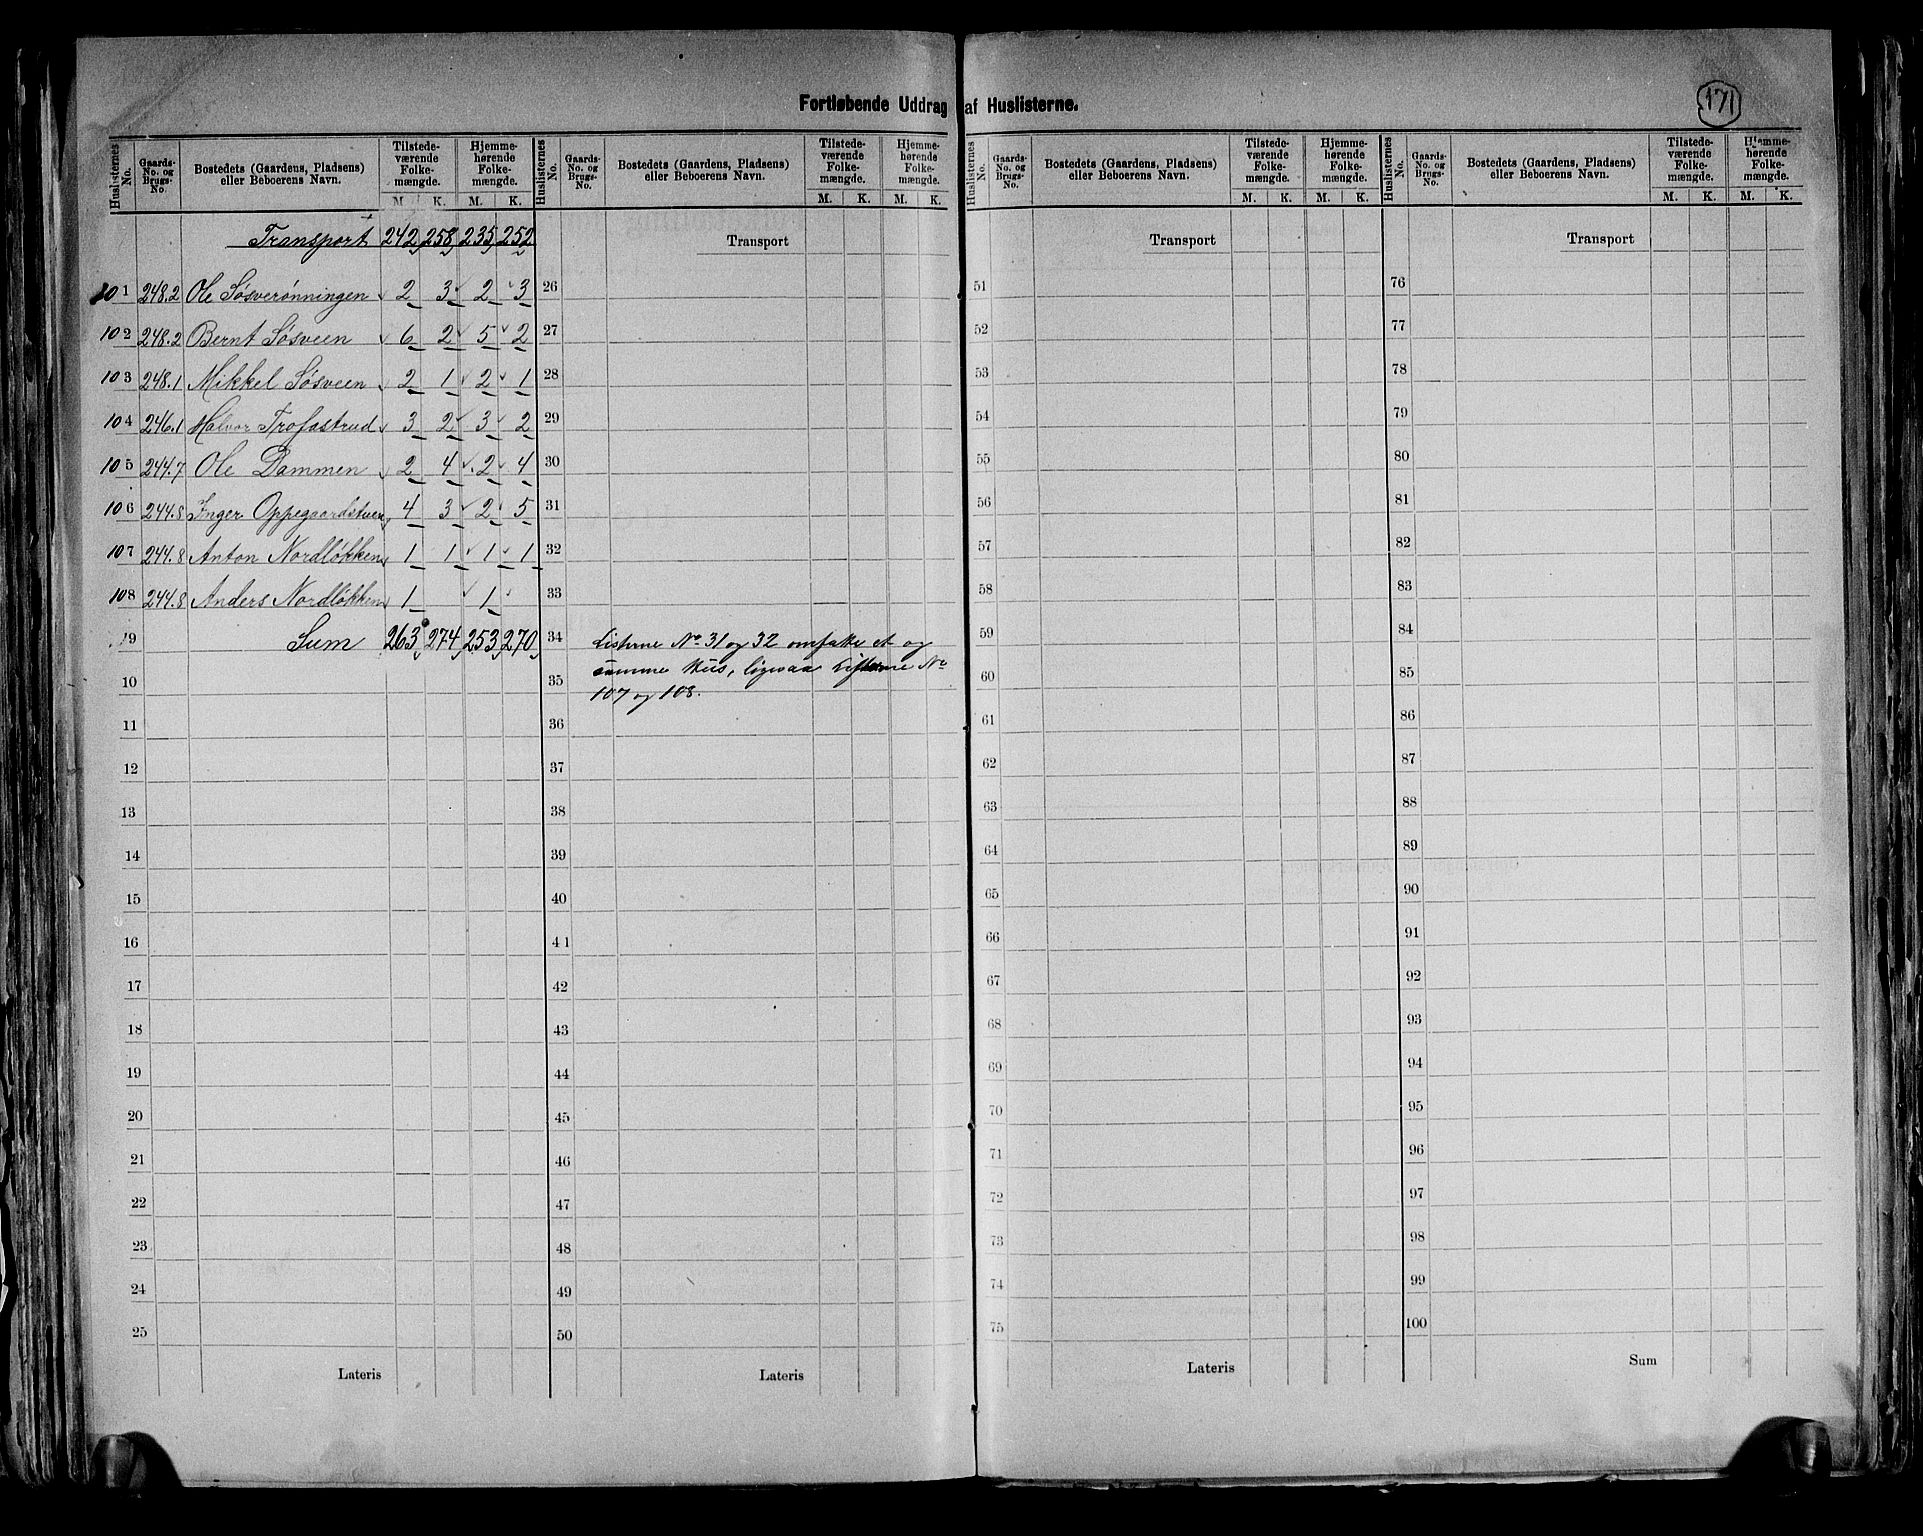 Fortløbende Uddrag af Huslisterne.
171
Huslisternes No. | Gaards-No. og Brugs-No. | Bostedets (Gaardens, Pladsens) eller Beboerens Navn. | Tilstedeværende Folkemængde. M. K. | Hjemmehørende Folkemængde. M. K.
Transport 242 258 235 252
101 248.2 Ole Søsverønningen 2 3 2 3
102 248.2 Bernt Søsveen 6 2 5 2
103 248.1 Mikkel Søsveen 2 1 2 1
104 246.1 Halvor Trofastrud 3 2 3 2
105 244.7 Ole Dammen 2 4 2 4
106 244.8 Inger Oppegaardstuen 4 3 2 5
107 244.8 Anton Nordløkken 1 1 1 1
108 244.8 Anders Nordløkken 1 1
9 Sum 263 274 253 270
10
11
12
13
14
15
16
17
18
19
20
21
22
23
24
25
Lateris
Huslisternes No. | Gaards-No. og Brugs-No. | Bostedets (Gaardens, Pladsens) eller Beboerens Navn. | Tilstedeværende Folkemængde. M. K. | Hjemmehørende Folkemængde. M. K.
Transport
26
27
28
29
30
31
32
33
34 Listerne No 31 og 32 omfatte et og
samme Hus, ligesaa Listerne No
35
107 og 108.
36
37
38
39
40
41
42
43
44
45
46
47
48
49
50
Lateris
Huslisternes No. | Gaards-No. og Brugs-No. | Bostedets (Gaardens, Pladsens) eller Beboerens Navn. | Tilstedeværende Folkemængde. M. K. | Hjemmehørende Folkemængde. M. K.
Transport
51
52
53
54
55
56
57
58
59
60
61
62
63
64
65
66
67
68
69
70
71
72
73
74
75
Lateris
Huslisternes No. | Gaards-No. og Brugs-No. | Bostedets (Gaardens, Pladsens) eller Beboerens Navn. | Tilstedeværende Folkemængde. M. K. | Hjemmehørende Folkemængde. M. K.
Transport
76
77
78
79
80
81
82
83
84
85
86
87
88
89
90
91
92
93
94
95
96
97
98
99
100
Sum